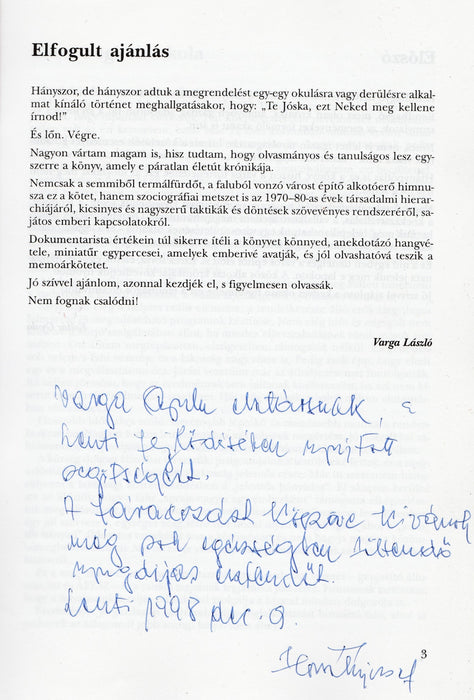 Elfogult ajánlás
Hányszor, de hányszor adtuk a megrendelést egy-egy okulásra vagy derülésre alkal-
mat kínáló történet meghallgatásakor, hogy: „Te Jóska, ezt Neked meg kellene
írnod!”
És lőn. Végre.
Nagyon vártam magam is, hisz tudtam, hogy olvasmányos és tanulságos lesz egy-
szerre a könyv, amely e páratlan életút krónikája.
Nemcsak a semmiből termálfürdőt, a faluból vonzó várost építő alkotóerő himnu-
sza ez a kötet, hanem szociográfiai metszet is az 1970–80-as évek társadalmi hierar-
chiájáról, kicsinyes és nagyszerű taktikák és döntések szövevényes rendszeréről, sa-
játos emberi kapcsolatokról.
Dokumentarista értékein túl sikerre ítéli a könyvet könnyed, anekdotázó hangvé-
tele, miniatűr egypercesei, amelyek emberivé avatják, és jól olvashatóvá teszik a
memoárkötetet.
Jó szívvel ajánlom, azonnal kezdjék el, s figyelmesen olvassák.
Nem fognak csalódni!
Varga László
Varga Gyula elvtársnak, a
Lenti fejlődésében nyújtott
segítségéért.
A fáradozást köszönve kívánok
még sok egészségben töltendő
nyugdíjas esztendőt.
Lenti 1998 dec. 9.
3